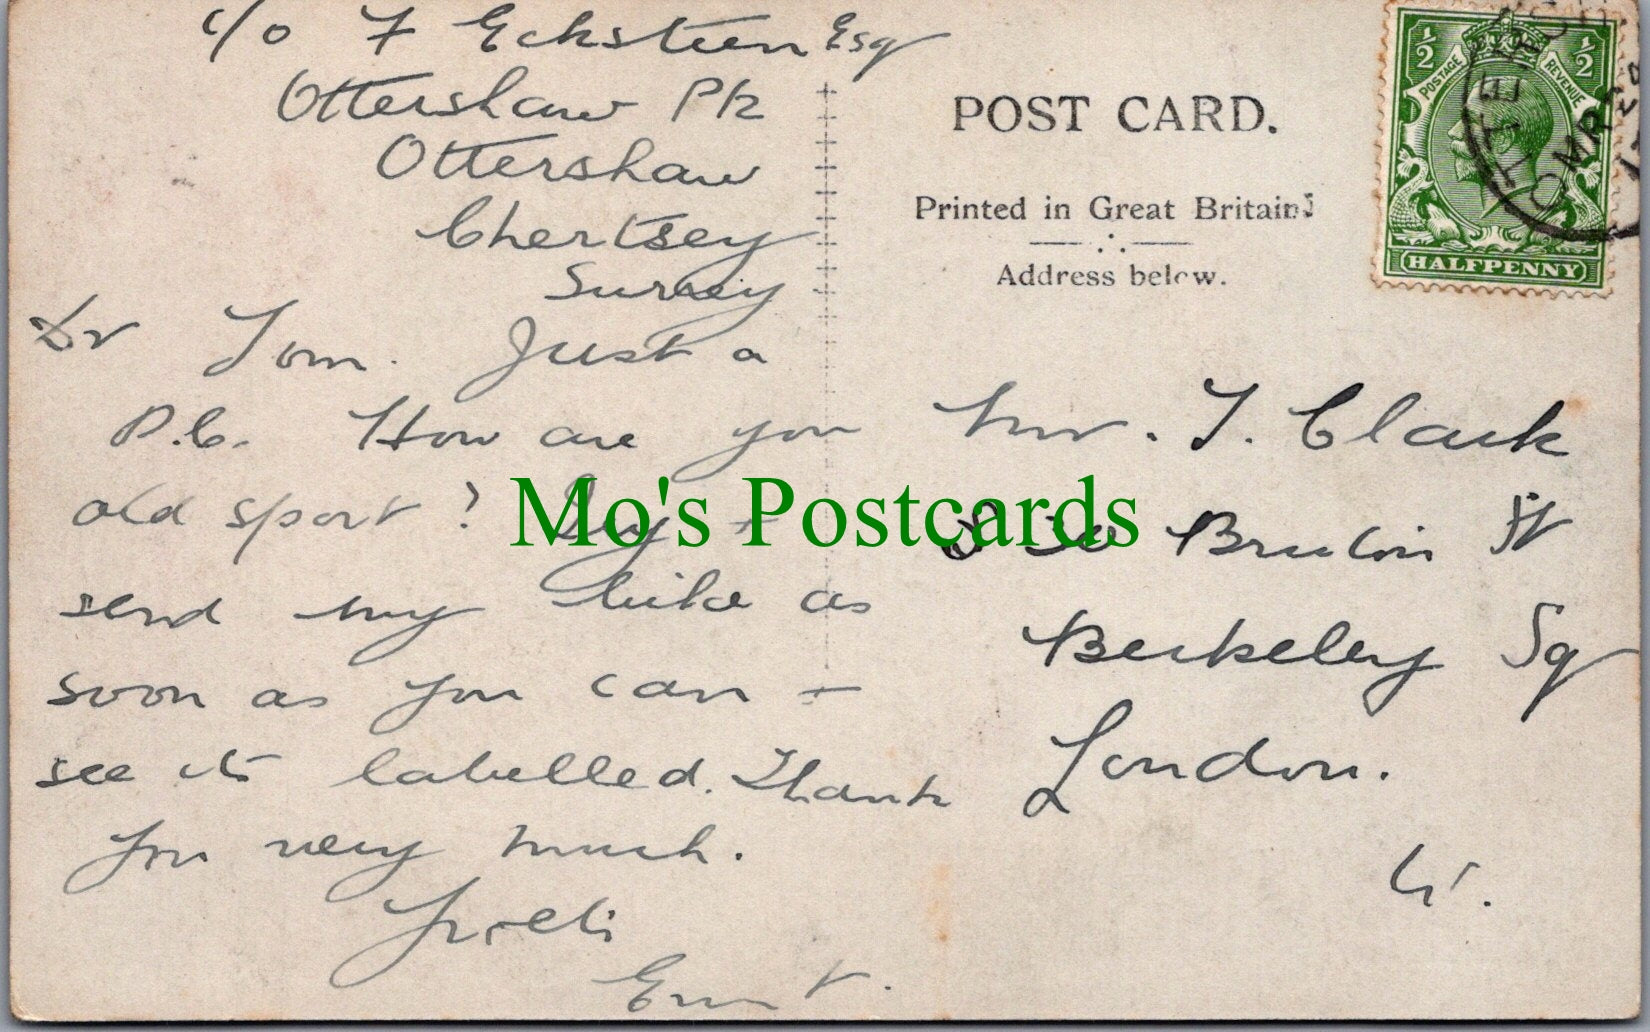 c/o F Eckstein Esq
Ottershaw Pk
Ottershaw
Chertsey
Surrey
Dr Tom. Just a
P.C. How are you
old sport? Try +
send my bike as
soon as you can +
see its labelled. Thank
you very much.
Yrs etc
Ernest.
POST CARD.
Printed in Great Britain
Address below.
½ ½
POSTAGE REVENUE
HALFPENNY
MR 28
17
Mr. T. Clark
30 Bruton St
Berkeley Sq
London.
W.
Mo's Postcards